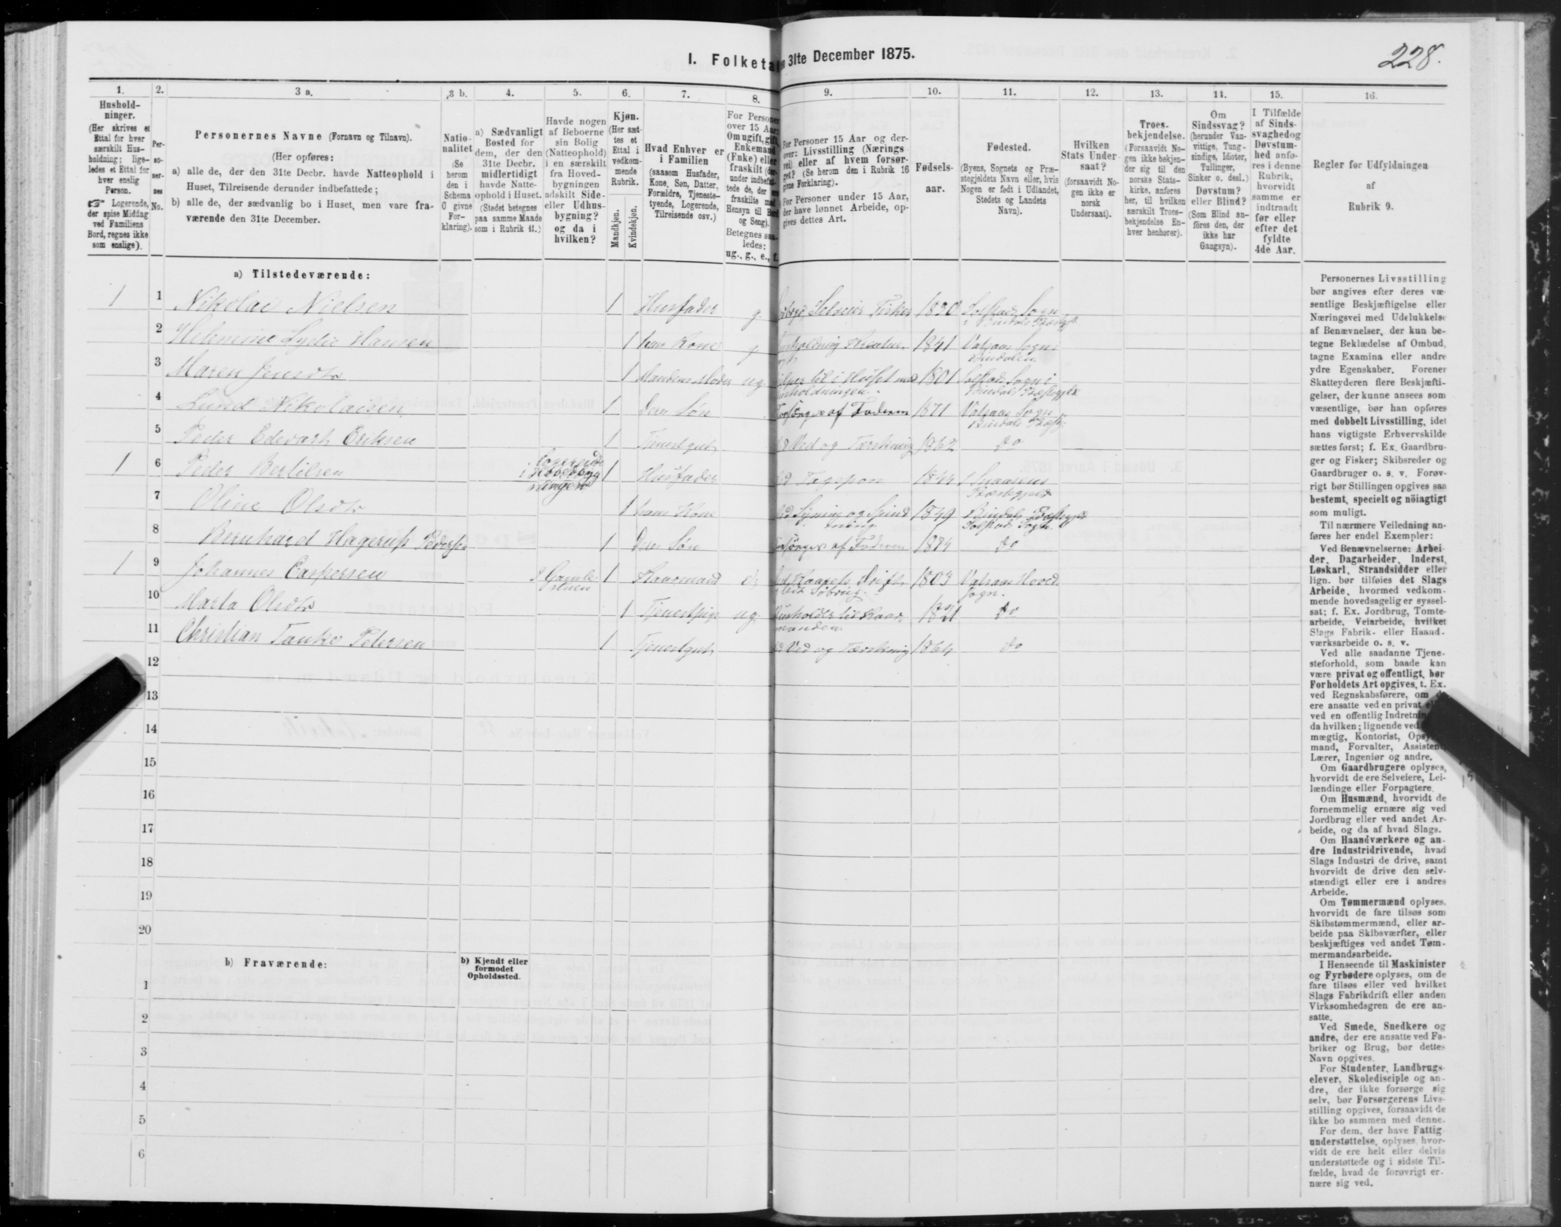 I. Folketa
n 31te December 1875.
228.
1.
2.
3 a.
3 b.
4.
5.
6.
7.
8.
9.
10.
11.
12.
13.
14.
15.
16.
Hushold-
ninger.
(Her skrives et
Ettal for hver
særskilt Hus-
holdning; lige-
ledes et Ettal for
hver enslig
Person.
☞ Logerende,
der spise Middag
ved Familiens
Bord, regnes ikke
som enslige).
Per-
so-
ner-
nes
No.
Personernes Navne (Fornavn og Tilnavn).
(Her opføres:
a) alle de, der den 31te Decbr. havde Natteophold i
Huset, Tilreisende derunder indbefattede;
b) alle de, der sædvanlig bo i Huset, men vare fra-
værende den 31te December.
Natio-
nalitet
(Se
herom
den i
Schema
O givne
For-
klaring).
a) Sædvanligt
Bosted for
dem, der den
31te Decbr.
midlertidigt
havde Natte-
ophold i Huset.
(Stedet betegnes
paa samme Maade
som i Rubrik 11.)
Havde nogen
af Beboerne
sin Bolig
(Natteophold)
i en særskilt
fra Hoved-
bygningen
adskilt Side-
eller Udhus-
bygning?
og da i
hvilken?
Kjøn.
(Her sæt-
tes et
Ettal i
vedkom-
mende
Rubrik.
Mandkjøn.
Kvindekjøn.
Hvad Enhver er
i Familien
(saasom Husfader,
Kone, Søn, Datter,
Forældre, Tjeneste-
tyende, Logerende,
Tilreisende osv.)
For Persone
over 15 Aar
Om ugift, gift,
Enkemand
(Enke) elle
fraskilt (de
under indbefat-
tede de, der ere
fraskilte med
Hensyn til Bord
og Seng).
Betegnes saa-
ledes:
ug., g., e., f.
For Personer 15 Aar og der-
over: Livsstilling (Nærings
vei) eller af hvem forsør-
get? (Se herom den i Rubrik 16
givne Forklaring).
For Personer under 15 Aar,
der have lønnet Arbeide, op-
gives dettes Art.
Fødsels-
aar.
Fødested.
(Byens, Sognets og Præ-
stegjeldets Navn eller, hvis
Nogen er født i Udlandet,
Stedets og Landets
Navn).
Hvilken
Stats Under
saat?
(forsaavidt No-
gen ikke er
norsk
Undersaat).
Troes-
bekjendelse.
(Forsaavidt No-
gen ikke bekjen-
der sig til den
norske Stats-
kirke, anføres
her, til hvilken
særskilt Troes-
bekjendelse En-
hver henhører).
Om
Sindssvag?
(herunder Van-
vittige, Tung-
sindige, Idioter,
Tullinger,
Sinker o. desl.)
Døvstum?
eller Blind?
(Som Blind an-
føres den, der
ikke har
Gangsyn).
I Tilfælde
af Sinds-
svaghed og
Døvstum-
hed anfø-
res i denne
Rubrik,
hvorvidt
samme er
indtraadt
før eller
efter det
fyldte
4de Aar.
Regler for Udfyldningen
af
Rubrik 9.
a) Tilstedeværende:
1 1 Nikolai Nielsen 1 Husfader g. Selveier Fisker 1830 Solstad Sogn
i Bindals
2 Helmine Lydie Hansen 1 hans Kone g 1841 Valsaas Sogn
Bindalen
3 Maren Jensdtr 1 Mandens Moder ug 1801 Solstad Sogn i
4 Lund Nikolaisen 1 Deres Søn Forsørges af Faderen 1871 Valsaas Sogn
5 Peder Edevart Eriksen 1 Tjenestgut Ved og 1862 do
1 6 Peder Bertilsen 1 Husfader 1844
7 Oline Olsdtr 1 hans Kone 1849 Bindals
Solstad Sogn
8 Bernhard Hagerup Pedersen 1 Deres Søn Forsørges af Faderen 1874 do
1 9 Johannes Caspersen I Gamle
stuen 1 Kaarmand 1803 Valsaas Hoved
Sogn.
10 Marta Olsdtr 1 Tjenestpige ug 1821 do
manden
11 Christian Tanke Petersen 1 Tjenestgut Ved og 1864 do
12
13
14
15
16
17
18
19
20
b) Fraværende:
b) Kjendt eller
formodet
Opholdssted.
1
2
3
4
5
6
Personernes Livsstilling
bør angives efter deres væ-
sentlige Beskjæftigelse eller
Næringsvei med Udelukkelse
af Benævnelser, der kun be-
tegne Beklædelse af Ombud,
tagne Examina eller andre
ydre Egenskaber. Forener
Skatteyderen flere Beskjæfti-
gelser, der kunne ansees som
væsentlige, bør han opføres
med dobbelt Livsstilling, idet
hans vigtigste Erhvervskilde
sættes først; f. Ex. Gaardbru-
ger og Fisker; Skibsreder og
Gaardbruger o. s. v. Forøv-
rigt bør Stillingen opgives saa
bestemt, specielt og nöiagtigt
som muligt.
Til nærmere Veiledning an-
føres her endel Exempler:
Ved Benævnelserne: Arbei-
der, Dagarbeider, Inderst,
Løskarl, Strandsidder eller
lign. bør tilføies det Slags
Arbeide, hvormed vedkom-
mende hovedsagelig er syssel-
sat; f. Ex. Jordbrug, Tomte-
arbeide, Veiarbeide, hvilket
Slags Fabrik- eller Haand-
værksarbeide o. s. v.
Ved alle saadanne Tjene-
steforhold, som baade kan
være privat og offentligt, bør
Forholdets Art opgives, t. Ex.
ved Regnskabsførere, om
ere ansatte ved en privat
ved en offentlig Indretnin
da hvilken; lignende ved
mægtig, Kontorist, Opsy
mand, Forvalter, Assistent
Lærer, Ingeniør og andre.
Om Gaardbrugere oplyses,
hvorvidt de ere Selveiere, Lei-
lændinge eller Forpagtere.
Om Husmænd, hvorvidt de
fornemmelig ernære sig ved
Jordbrug eller ved andet Ar-
beide, og da af hvad Slags.
Om Haandværkere og an-
dre Industridrivende, hvad
Slags Industri de drive, samt
hvorvidt de drive den selv-
stændigt eller ere i andres
Arbeide.
Om Tømmermænd oplyses,
hvorvidt de fare tilsøs som
Skibstømmermænd, eller ar-
beide paa Skibsværfter, eller
beskjæftiges ved andet Tøm-
mermandsarbeide.
I Henseende til Maskinister
og Fyrbødere oplyses, om de
fare tilsøs eller ved hvilket
Slags Fabrikdrift eller anden
Virksomhedsgren de ere an-
satte.
Ved Smede, Snedkere og
andre, der ere ansatte ved Fa-
briker og Brug, bør dettes
Navn opgives.
For Studenter, Landbrugs-
elever, Skoledisciple og an-
dre, der ikke forsørge sig
selv, bør Forsørgerens Livs-
stilling opgives, forsaavidt de
ikke bo sammen med denne.
For dem, der have Fattig-
understøttelse, oplyses, hvor-
vidt de ere helt eller delvis
understøttede og i sidste Til-
fælde, hvad de forøvrigt er-
nære sig ved.